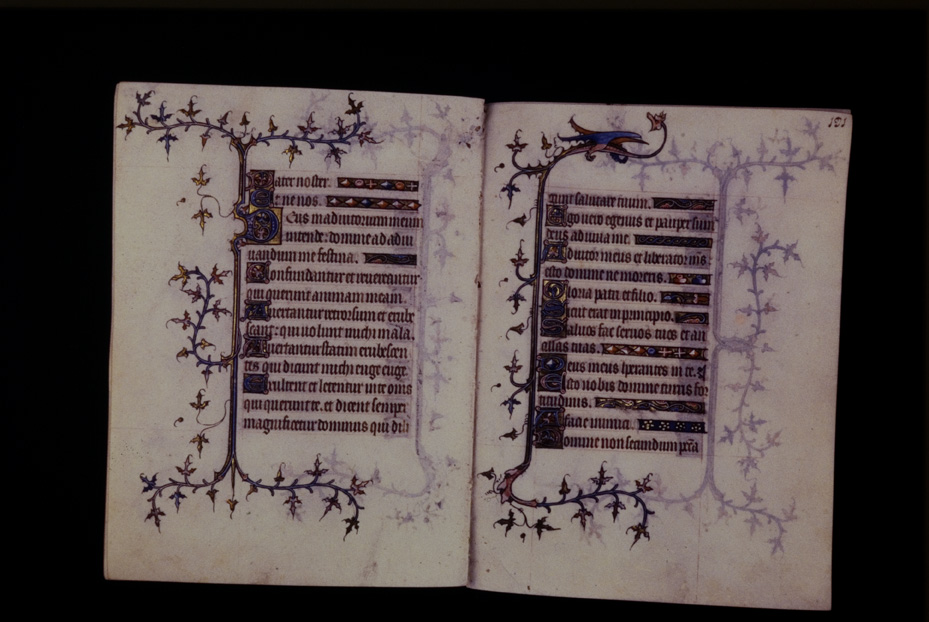 Pater noster.
Et ne nos.
Deus in adiutorium meum
intende: domine ad adiu
uandum me festina.
Confundantur et reuereantur
qui querunt animam meam.
Auertantur retrorsum et erube
scant: qui uolunt michi mala.
Auertantur statim erubescen
tes qui dicunt michi euge euge.
Exultent et letentur in te omnes
qui querunt te. et dicant semper
magnificetur dominus qui dili
181
gunt salutare tuum.
Ego uero egenus et pauper sum
deus adiuua me.
Adiutor meus et liberator meus
esto domine ne moreris.
Gloria patri et filio.
Sicut erat in principio.
Saluos fac seruos tuos et an
cillas tuas.
Deus meus sperantes in te.
Esto nobis domine turris for
titudinis.
A facie inimici.
Domine non secundum peccata